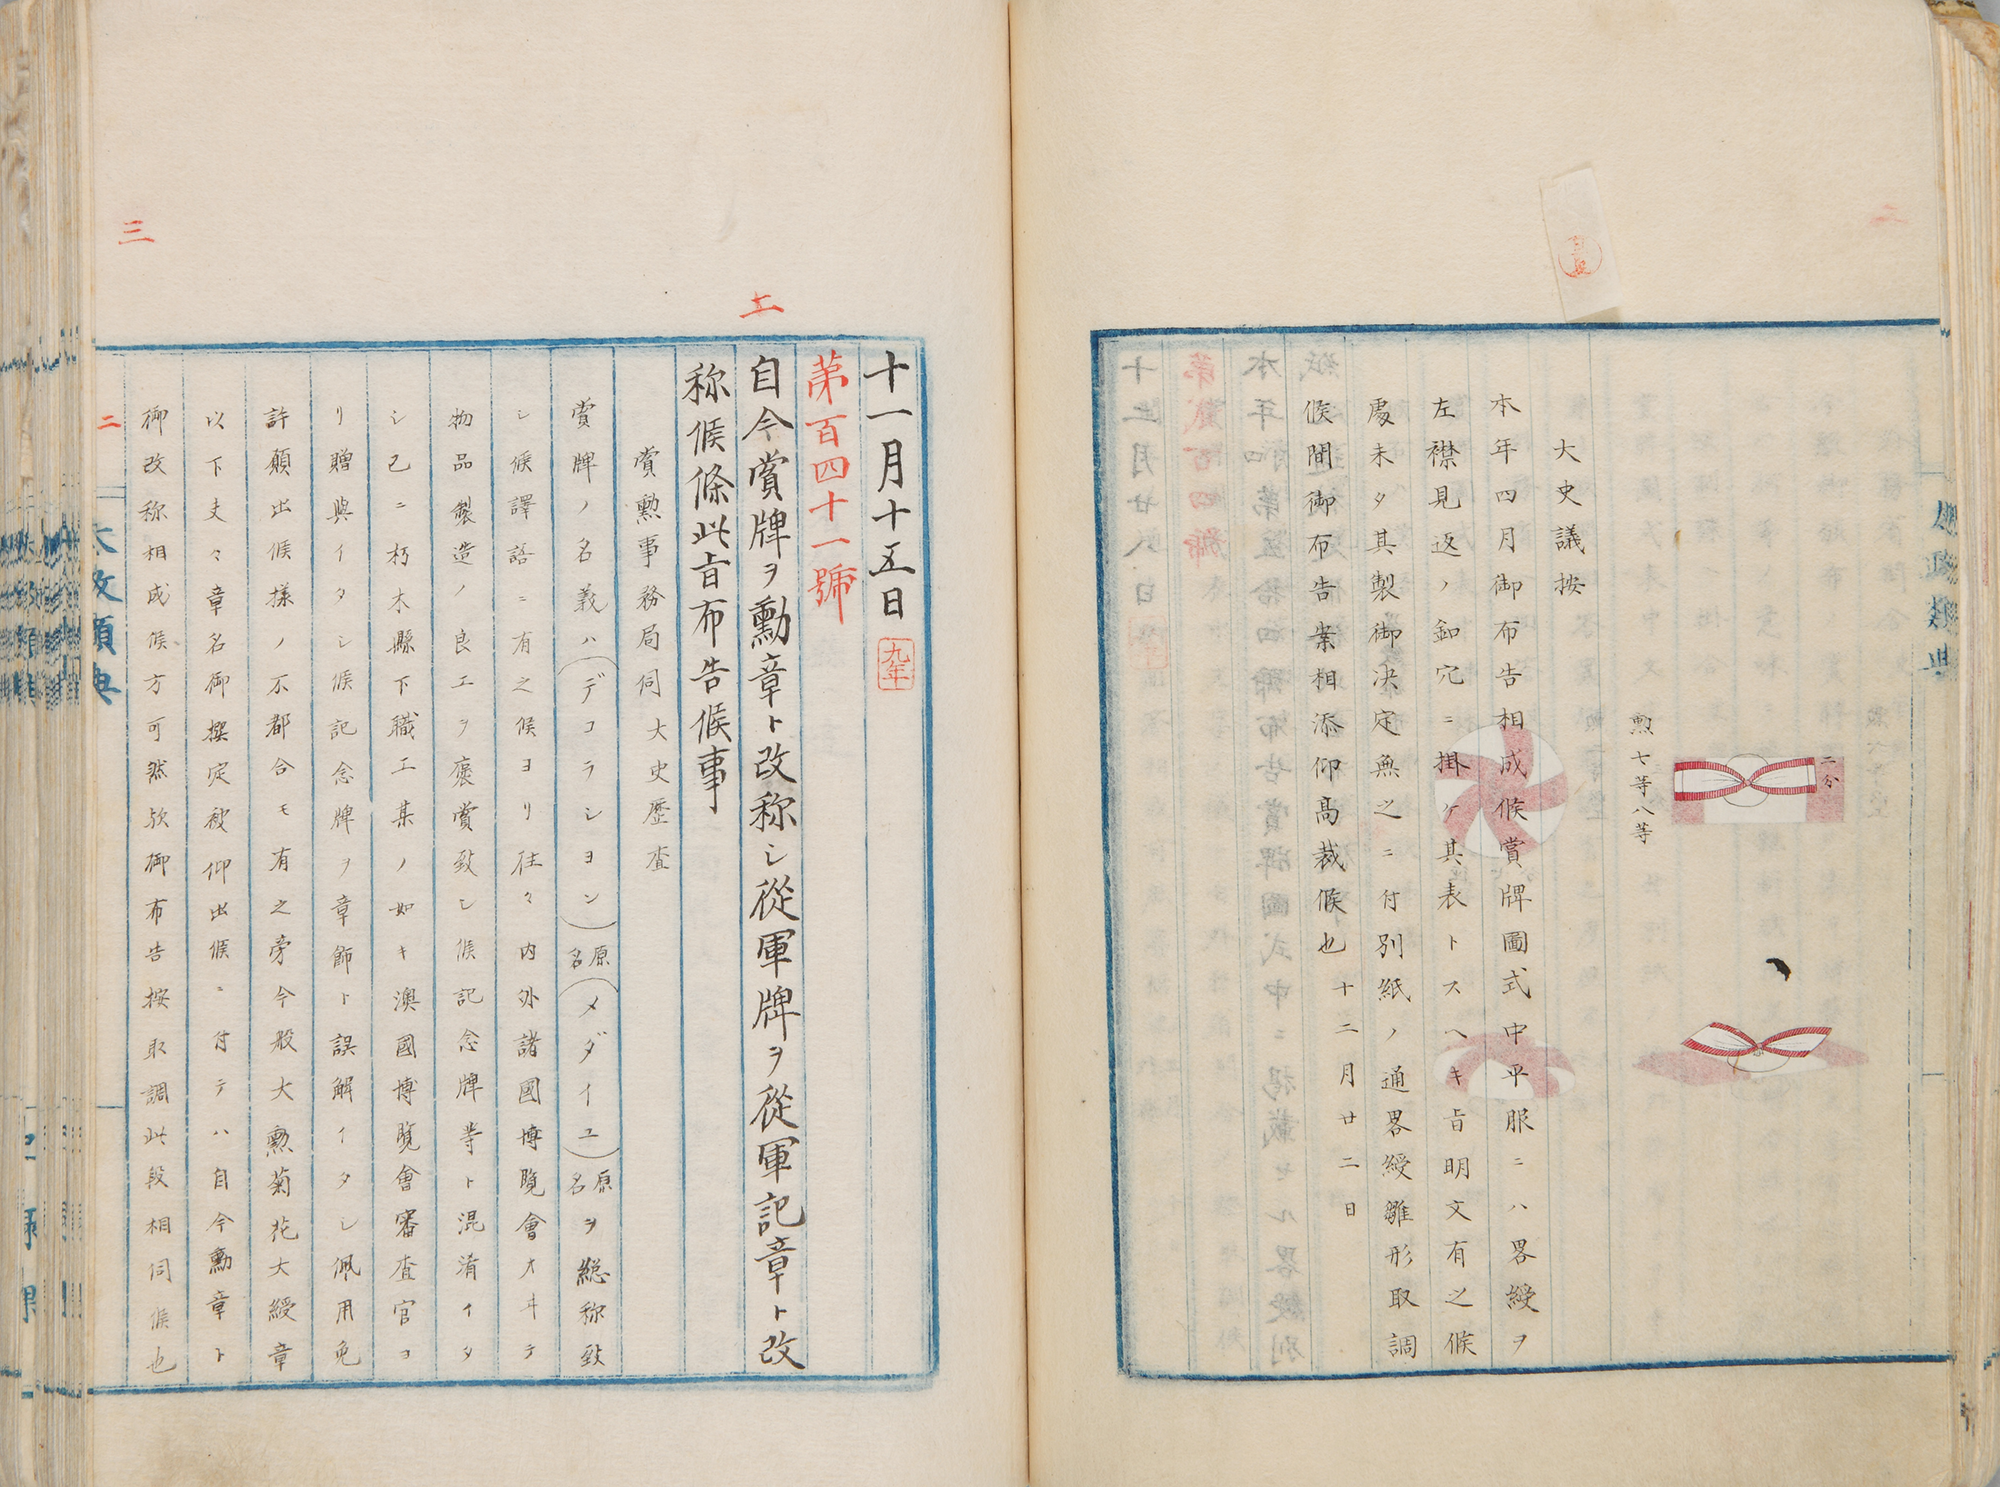 二分
勲七等八等
大史議按
本年四月御布告相成候賞牌圖式中平服ニハ畧綬ヲ
左襟見返ノ釦穴ニ掛ケ其表トスヘキ旨明文有之候
處未タ其製御決定無之ニ付別紙ノ通畧綬雛形取調
候間御布告案相添仰高裁候也 十二月廿二日
十一月十五日 九年
第百四十一號
自今賞牌ヲ勳章ト改称シ從軍牌ヲ從軍記章ト改
称候條此旨布告候事
賞勲事務局伺 大史歴査
賞牌ノ名義ハ(デコラシヨン)原名(メダイユ)原名ヲ総称致
シ候譯語ニ有之候ヨリ往々内外諸國博覧會オヰテ
物品製造ノ良工ヲ褒賞致シ候記念牌等ト混淆イタ
シ已ニ朽木縣下職工某ノ如キ澳國博覧會審査官ヨ
リ贈與イタシ候記念牌ヲ章飾ト誤解イタシ佩用免
許願出候様ノ不都合モ有之旁今般大勲菊花大綬章
以下夫々章名御撰定被仰出候ニ付テハ自今勳章ト
御改称相成候方可然欤御布告按取調此段相伺候也
太政類典
二
三